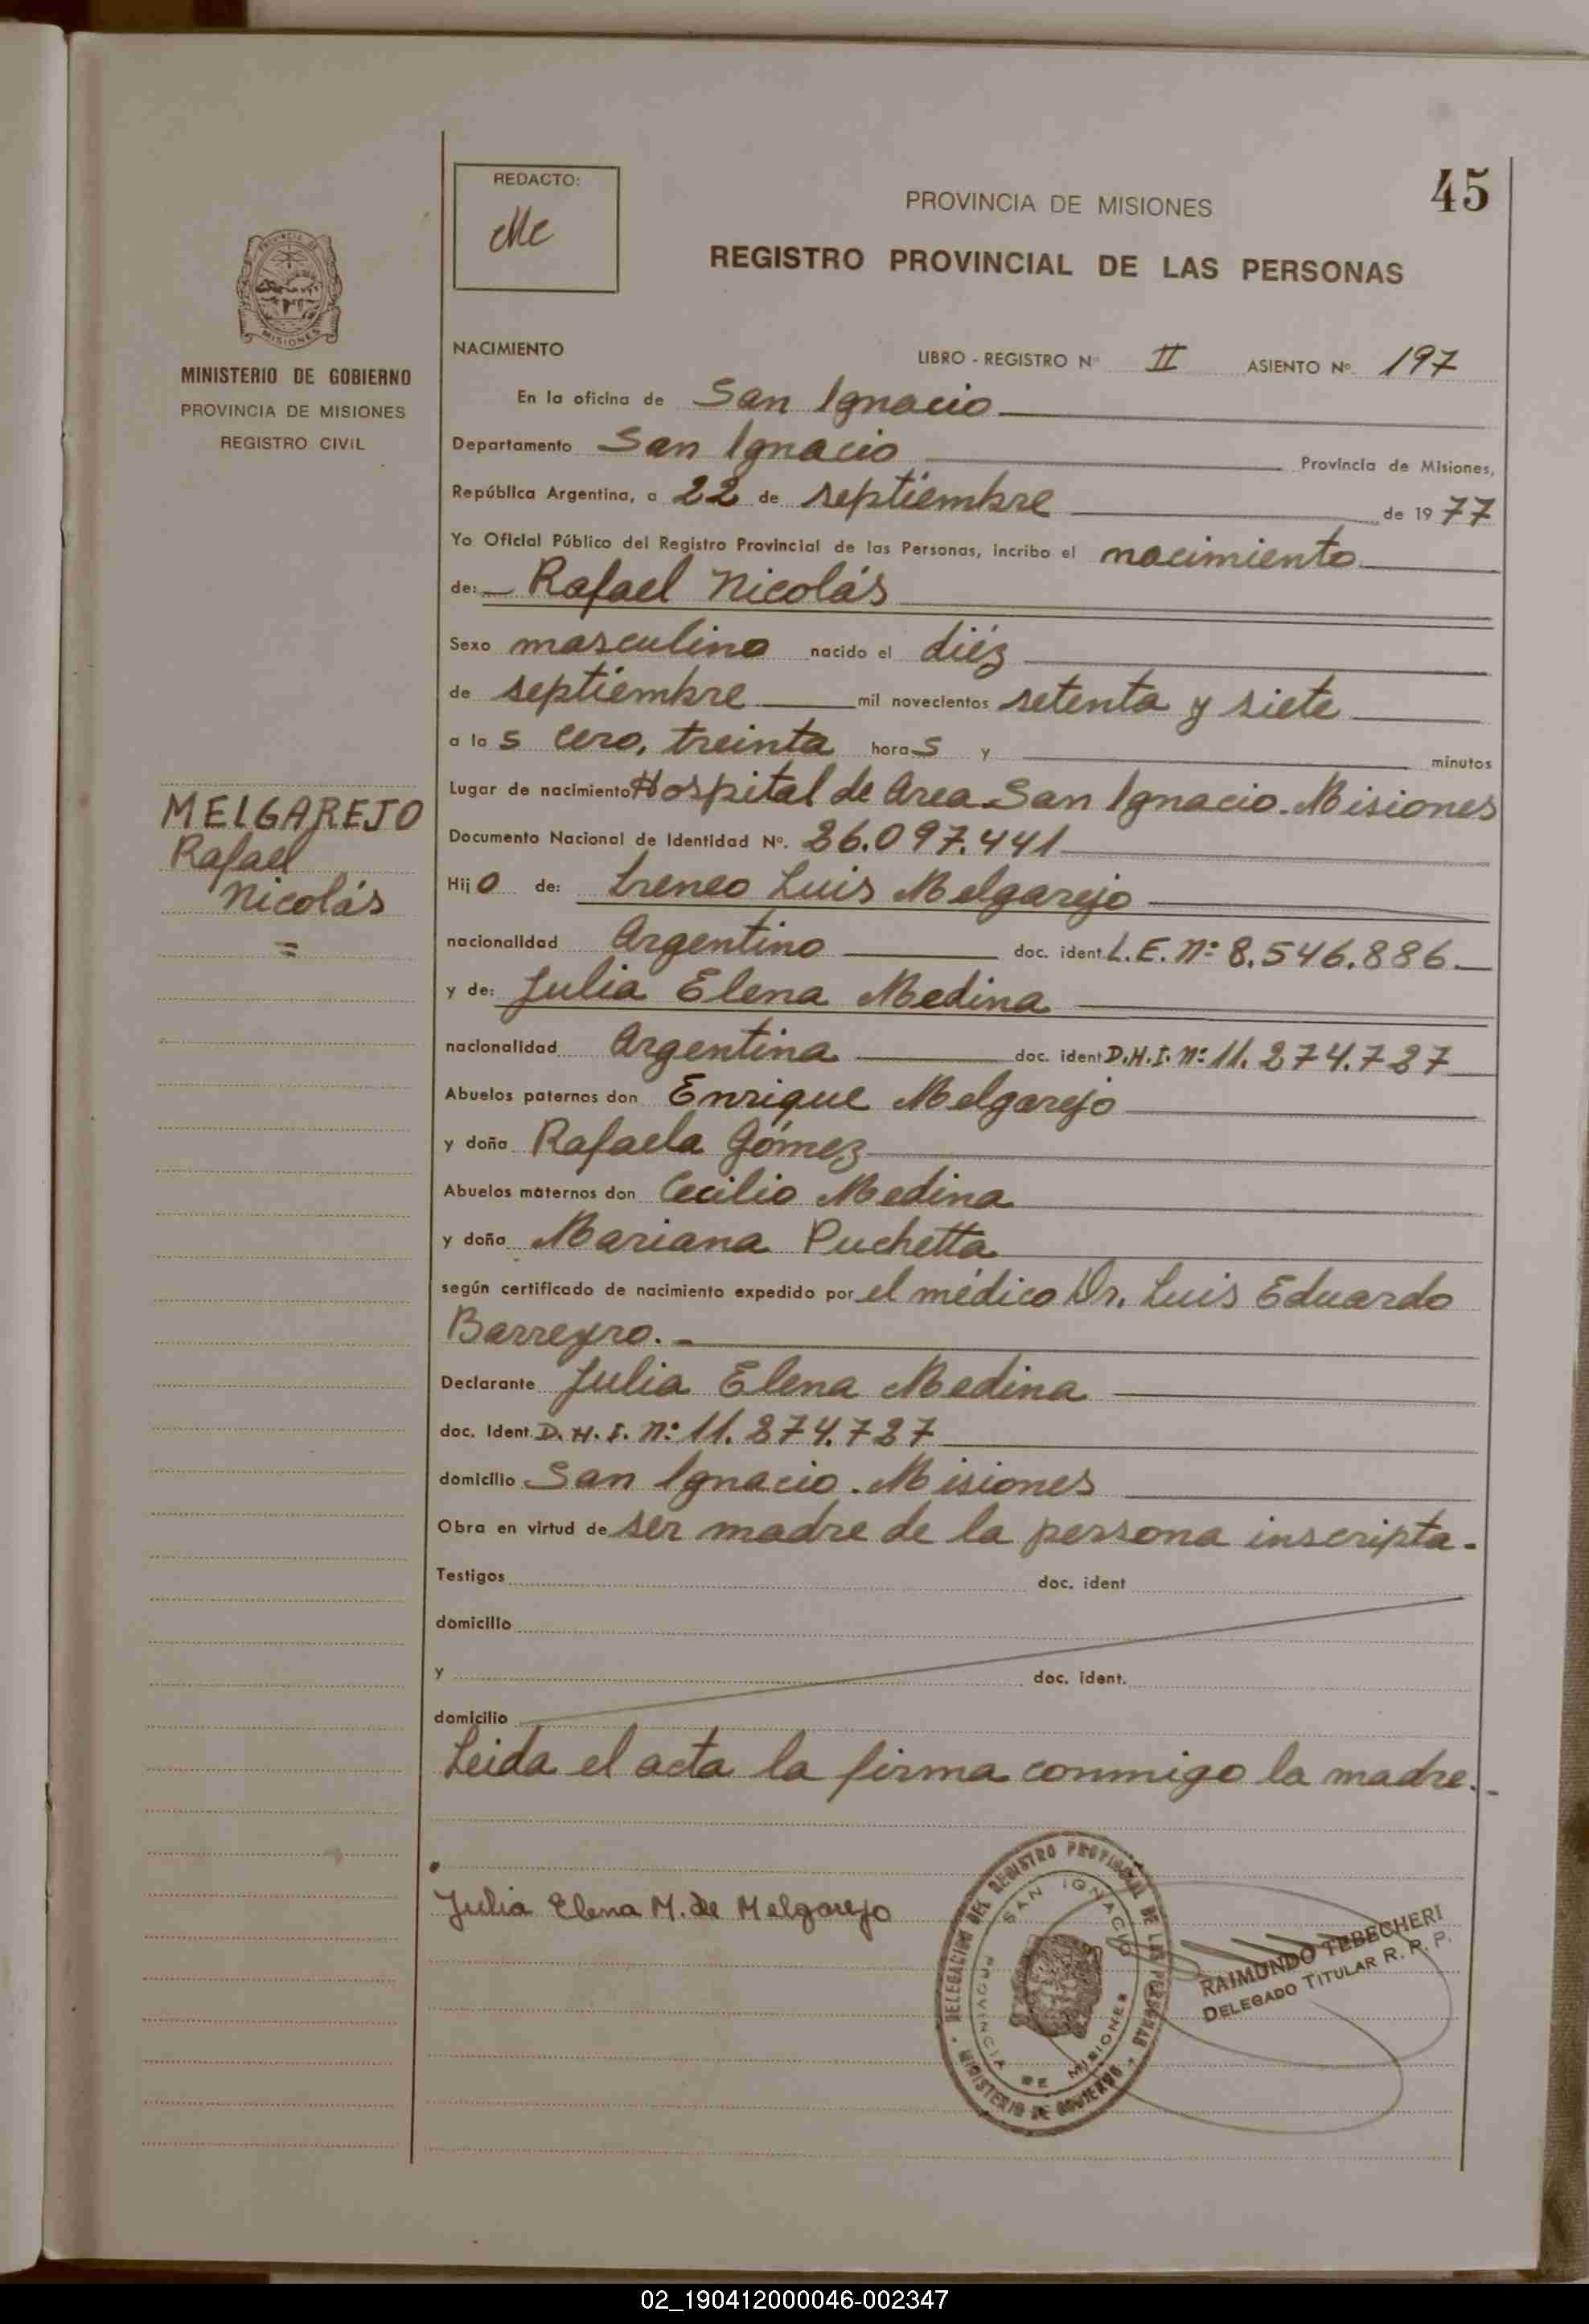 45
REDACTO:
Mc
PROVINCIA DE MISIONES
REGISTRO PROVINCIAL DE LAS PERSONAS
PROVINCIA DE
MISIONES
MINISTERIO DE GOBIERNO
PROVINCIA DE MISIONES
REGISTRO CIVIL
NACIMIENTO LIBRO - REGISTRO Nº II ASIENTO Nº 197
En la oficina de San Ignacio
Departamento San Ignacio Provincia de Misiones,
República Argentina, a 22 de septiembre de 1977
Yo Oficial Público del Registro Provincial de las Personas, incribo el nacimiento
de: Rafael Nicolás
Sexo masculino nacido el diéz
de septiembre mil novecientos setenta y siete
a las cero, treinta horas y minutos
Lugar de nacimiento Hospital de Area San Ignacio. Misiones
MELGAREJO
Rafael
Nicolás
=
Documento Nacional de Identidad Nº. 26.097.441
Hijo de: Ireneo Luis Melgarejo
nacionalidad Argentino doc. ident. L.E. nº 8.546.886.
y de: Julia Elena Medina
nacionalidad Argentina doc. ident D.N.I. nº 11.274.727
Abuelos paternos don Enrique Melgarejo
y doña Rafaela Gómez
Abuelos maternos don Cecilio Medina
y doña Mariana Puchetta
según certificado de nacimiento expedido por el médico Dr. Luis Eduardo
Barreyro. -
Declarante Julia Elena Medina
doc. Ident. D.N.I. nº 11.274.727
domicilio San Ignacio. Misiones
Obra en virtud de ser madre de la persona inscripta.
Testigos doc. ident
domicilio
y doc. ident.
domicilio
Leida el acta la firma conmigo la madre. -
Julia Elena M. de Melgarejo
DELEGACION DEL REGISTRO PROVINCIAL DE LAS PERSONAS
SAN IGNACIO
PROVINCIA DE MISIONES
MINISTERIO DE GOBIERNO
RAIMUNDO TEBECHERI
DELEGADO TITULAR R. R. P.
02_190412000046-002347